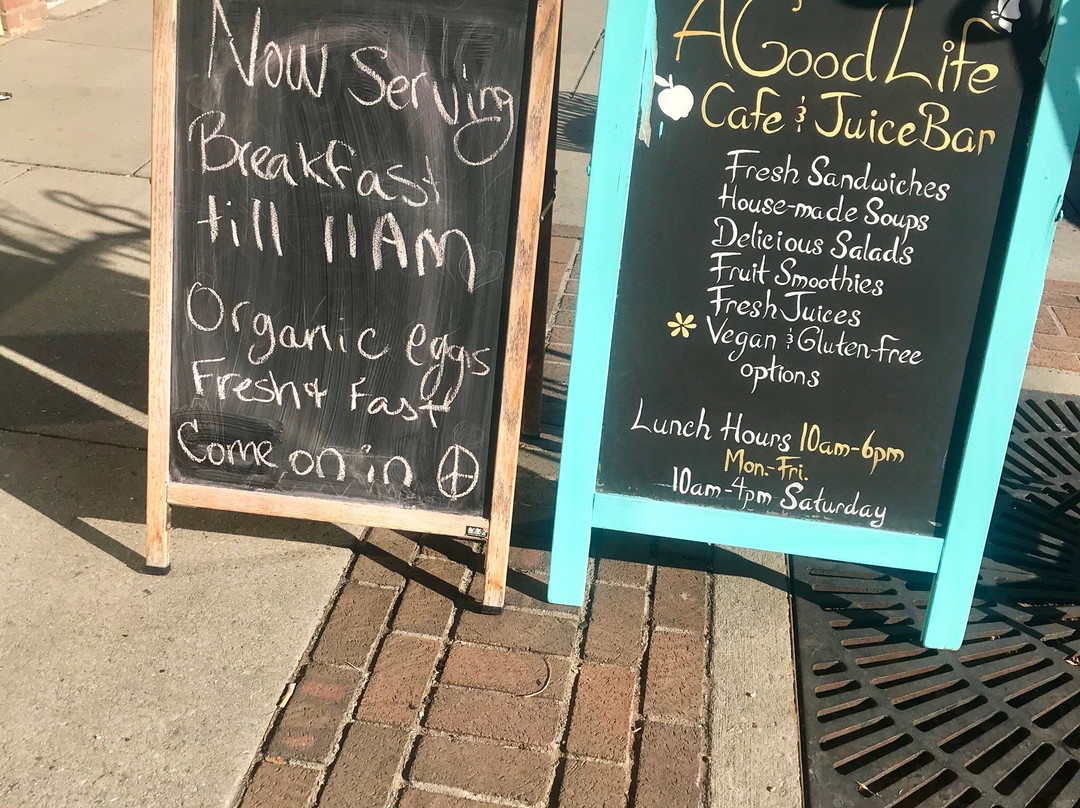 Now Serving
Breakfast
till 11AM
Organic eggs
Fresh & Fast
Come on in
A Good Life
Cafe & Juice Bar
Fresh Sandwiches
House-made Soups
Delicious Salads
Fruit Smoothies
Fresh Juices
Vegan & Gluten-free
options
Lunch Hours 10am-6pm
Mon.-Fri.
10am-4pm Saturday